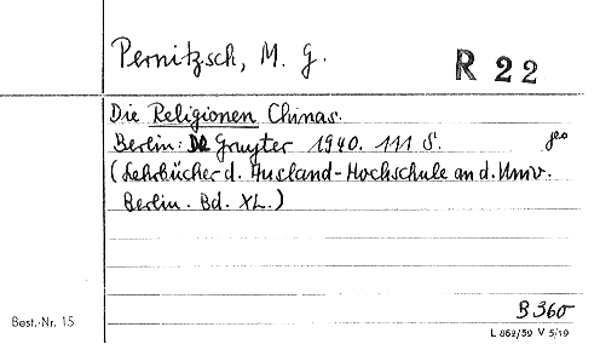 Pernitzsch, M. G.
R 22
Die Religionen Chinas.
Berlin: De Gruyter 1940. 111 S.
(Lehrbücher d. Ausland-Hochschule an d. Univ.
Berlin. Bd. XL.)
B 360
Best.-Nr. 15
L 862/59 V 5/19